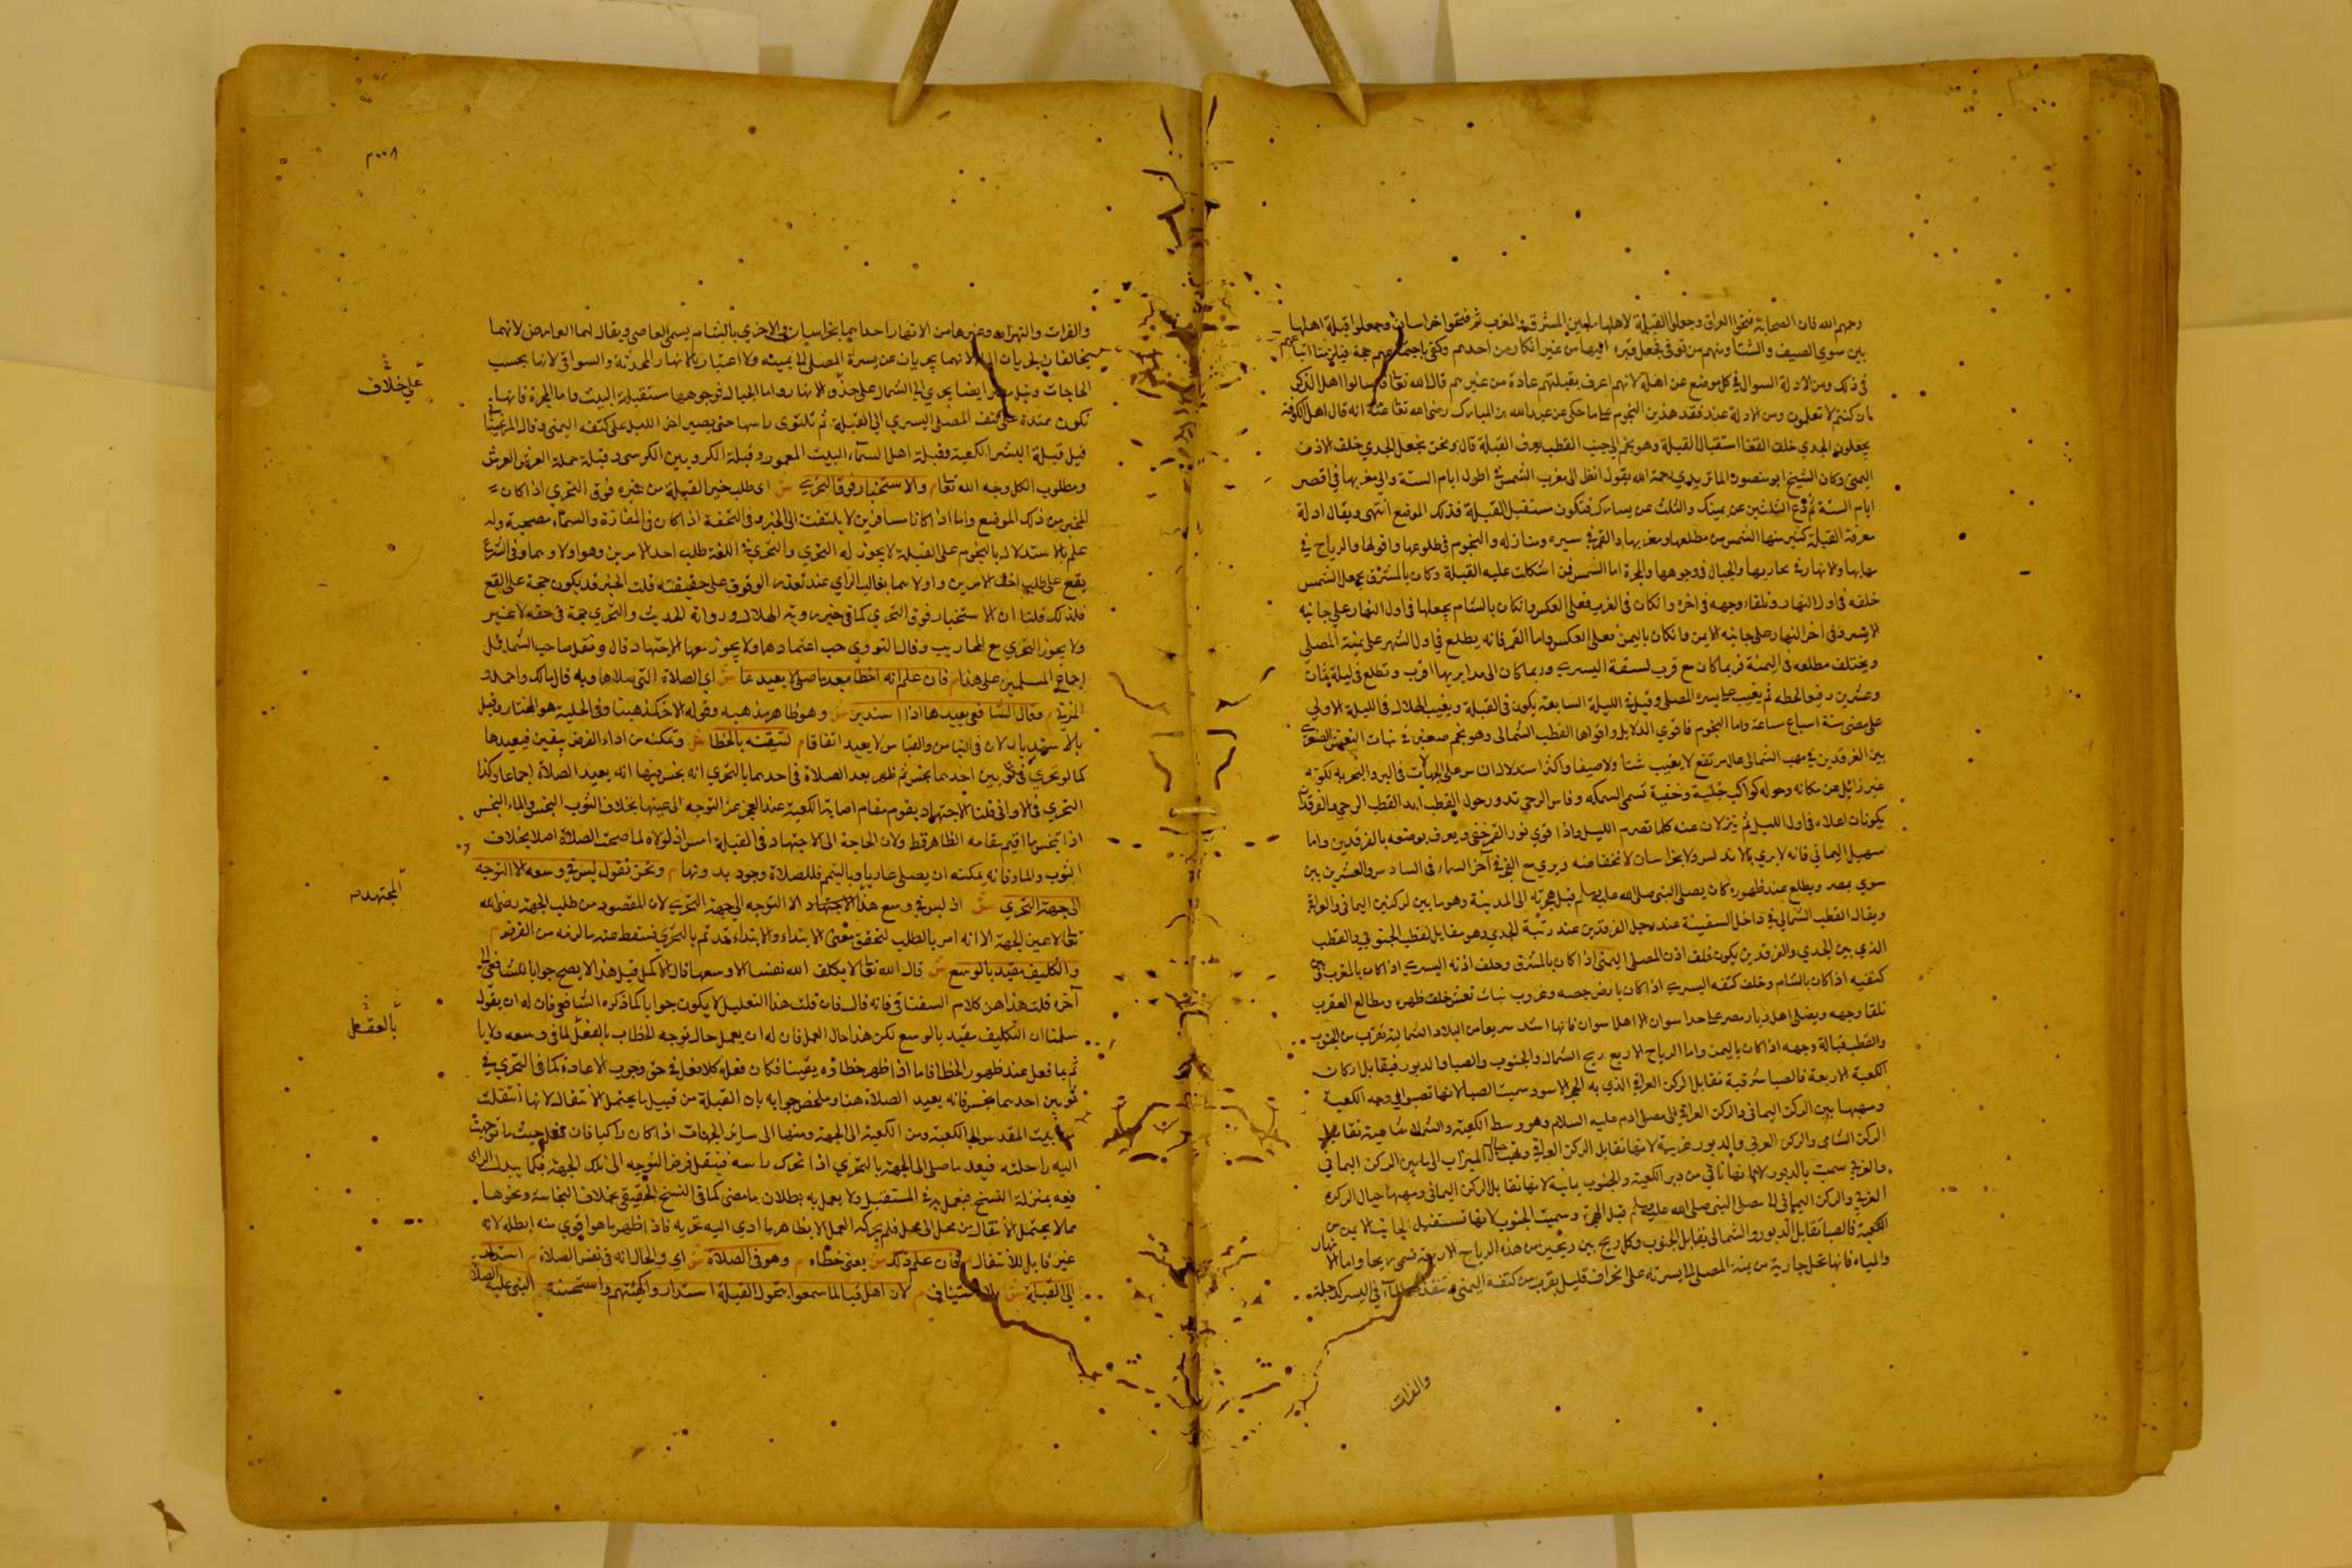 رحمهم الله فان الصحابة فتحوا العراق وجعلوا القبلة لاهلها مابين المشرق والمغرب ثم فتحوا خراسان وجعلوا قبلة اهلها
بين سوى الصيف والشتا ومنهم من توفى فجعل قبره اليها من غير انكار من احدهم وكفى باجماعهم حجة فيلزمنا اتباعهم
فى ذلك ومن الادلة السوال فى كل موضع عن اهله لانهم اعرف بقبلتهم عادة من غيرهم قال الله تعا فاسالوا اهل الذكر
ان كنتم لا تعلمون ومن الادلة عند فقد هذين النجوم على ما حكى عن عبد الله بن المبارك رضى الله تعا عنه انه قال اهل الكوفة
يجعلون الجدي خلف القفا استقبال القبلة وهو نجم الى جنب القطب يعرف القبلة قال ونحن نجعل الجدي خلف الاذن
اليمنى وكان الشيخ ابو منصور الماتريدي رحمه الله يقول انظر الى مغرب الشمس فى اطول ايام السنة والى مغربها فى اقصر
ايام السنة ثم دع الثلثين عن يمينك والثلث عن يسارك فتكون مستقبل القبلة فذلك الموضع انتهى ويقال ادلة
معرفة القبلة كثير منها الشمس من مطلعها ومغربها والقمر فى سيره ومنازله والنجوم فى طلوعها وافولها والرياح فى
مهابها والانهار فى مجاريها والجبال فى وجوهها والمجرة اما الشمس فمن اشكلت عليه القبلة وكان بالمشرق جعل الشمس
خلفه فى اول النهار وتلقاء وجهه فى اخره وان كان فى الغرب فعلى العكس وان كان بالشام يجعلها فى اول النهار على جانبه
الايسر وفى اخر النهار على جانبه الايمن وان كان باليمن فعلى العكس واما القمر فانه يطلع فى اول الشهر على يمنة المصلى
ويختلف مطلعه فى اليمنة فربما كان مع قرب لسقة اليسرى وربما كان الى مدابريها اقرب وتطلع فى ليلة ثمان
وعشرين
على مضى ستة اسباع ساعة واما النجوم فاقوي الدلايل واقواها القطب الشمالى وهو نجم صغير فى بنات النعش الصغرى
بين الفرقدين فى مهب الشمال عال مرتفع لا يغيب شتا ولا صيفا واكثر استدلال الناس على الجهات فى البر والبحر به لكونه
غير زائل عن مكانه وحوله كواكب جلية وخفية تسمى السمكة وفاس الرحى تدور حول القطب
يكونان اعلاه فى اول الليل ثم ينزلان عنه كلما تصرم الليل واذا قوي نور القمر خفى ويعرف بوضعه بالفرقدين واما
سهيل اليمانى فانه لا يرى بالاندلس ولا بخراسان لانخفاضه ويرى مع الفجر فى آخر السماء فى السادس والعشرين بين
سوى بمصر ويطلع عند ظهوره كان يصلى النبى صلى الله عليه وسلم قبل هجرته الى المدينة وهو ما بين الركنين اليمانى والعراقى
ويقال القطب الشمالى فى داخل السفينة عند رجل الفرقدين عند رتبة الجدي وهو مقابل لقطب الجنوبى والقطب
الذي بين الجدي والفرقدين يكون خلف اذن المصلى اليمنى اذا كان بالمشرق وخلف اذنه اليسرى اذا كان بالمغرب وبين
كتفيه اذا كان بالشام وخلف كتفه اليسرى اذا كان بارض وغروب بنات نعش خلف ظهره ومطالع العقرب
تلقا وجهه ويصلى اهل ديار مصر على حد اسوان الا اهل اسوان فانها اشد سريعا من البلاد الشمالية تقرب من الجنوب
والقطب قبالة وجهه اذا كان باليمن واما الرياح الاربع ريح الشمال والجنوب والصبا والدبور فيقابل اركان
الكعبة الاربعة فالصبا شرقية تقابل الركن العراقى الذي به الحجر الاسود سميت الصبا لانها تصبو الى وجه الكعبة
ومهبها بين الركن اليمانى والركن العراقى الى مصلى ادم عليه السلام وهو وسط الكعبة والشمال شامية تقابل
الركن الشامى والركن الغربى والدبور غربية لانها تقابل الركن العراقى ومهبها حيال الميزاب الى ما بين الركن اليمانى
والغربى سميت بالدبور لانها تاتى من دبر الكعبة والجنوب يمانية لانها تقابل الركن اليمانى ومهبها حيال الركن
الغربى والركن اليمانى الى مصلى النبى صلى الله عليه وسلم قبل الهجرة وسميت الجنوب لانها تستقبل الجانب الايمن من
الكعبة فالصبا تقابل الدبور والشمالى يقابل الجنوب وكل ريح بين ريحين من هذه الرياح الاربعة تسمى ريحا واما الانهار
والمياه فانها تحل جارية من يمنة المصلى الى يسرته على انحراف قليل بقرب من كتفه اليمنى فى اليسر كدجلة
والفرات
٢٠٠٨
والفرات والنهروان وغيرها من الانهار احدايهما بخراسان والاخرى بالشام يسمى العاصى ويقال لهما العارض لانهما
يخالفان لجريان المياه لانهما يجريان عن يسرة المصلى الى يمينه ولا اعتبار بالانهار المحدثة والسواقى لانها بحسب
الحاجات ونيل مصر ايضا يجري الى الشمال على حذو الانهار واما الجبال فوجوهها مستقبلة البيت واما المجرة فانها
تكون ممتدة على كتف المصلى اليسرى الى القبلة ثم تلتوى راسها حتى يصير اخر الليل على كتفه اليمنى وقال المرغينانى
قيل قبلة البشر الكعبة وقبلة اهل السماء البيت المعمور وقبلة الكروبيين الكرسى وقبلة حملة العرش العرش
ومطلوب الكل وجه الله تعا م والاستخبار فوق التحرى ش اى طلب خبر القبلة من غيره فوق التحري اذا كان
المخبر من ذلك الموضع واما اذا كانا مسافرين لا يلتفت الى الخبر وفى التحفة اذا كان فى المفازة والسماء مصحية وله
علم بالاستدلال بالنجوم على القبلة لا يجوز له التحري والتحري فى اللغة طلب احد الامرين وهو اولاهما وفى الشرع
يقع على طلب احد الامرين واولاهما بغالب الراي عند تعذر الوقوف على حقيقته قلت الخبر قد يكون حجة على القع
فلذلك قلنا ان الاستخبار فوق التحري كما فى خبر روية الهلال ورواة الحديث والتحري حجة فى حقه لا غير
ولا يجوز التحري مع المحاريب وقال النووي حب اعتمادها ولا يجوز معها الاجتهاد قال ونقل صاحب الشامل
اجماع المسلمين على هذا م فان علم انه اخطا بعد ما صلى لا يعيدها ش اي الصلاة التى صلاها وبه قال مالك واحمد و
المزنى م وقال الشافعى يعيدها اذا استدبر ش وهو ظاهر مذهبه وقوله الاخر كمذهبنا وفى الحلية هو المختار وقيل
بالاستدبار لان فى التياسر والتيامن لا يعيد اتفاقا م لتيقنه بالخطا ش وتمكنه من اداء الفرض بيقين فيعيدها
كما لو تحري فى ثوبين احدهما نجس ثم ظهر بعد الصلاة فى احدهما بالتحري انه نجس منها انه يعيد الصلاة اجماعا وكذا
التحري فى الاوانى قلنا الاجتهاد يقوم مقام اصابة الكعبة عند العجز عن التوجه الى عينها بخلاف الثوب النجس والماء النجس
اذا تنجس ما اقيم مقامه الظاهر قط ولان الحاجة الى الاجتهاد فى القبلة امس اذ لولاه لما صحت الصلاة اصلا بخلاف
الثوب والماء فانه يمكنه ان يصلى عاريا وبالتيمم فللصلاة وجود بدونها م ونحن نقول ليس فى وسعه الا التوجه
الى جهة التحري ش اذ ليس فى وسع هذا الاجتهاد الا التوجه الى جهة التحرى لان المقصود من طلب الجهة رضى الله
تعا لا عين الجهة الا انه امر بالطلب لتحقق معنى الابتداء والابتداء قد تم بالتحري فسقط عنه ما لزمه من الفرض م
والتكليف مقيد بالوسع ش قال الله تعا لا يكلف الله نفسا الا وسعها قال الاكمل قيل هذا لا يصح جوابا للشافعى الى
آخره قلت هذا من كلام السغناقى فانه قال فان قلت هذا التعليل لا يكون جوابا كما ذكره الشافعى فان له ان يقول
سلمنا ان التكليف مقيد بالوسع لكن هذا حال العمل فان له ان يعمل حال توجه الخطاب بالفعل لما فى وسعه ولا ياثم بما فعل عند ظهور الخطا فاما اذا ظهر خطاؤه يقينا فكان فعله كلا فعل فى حق وجوب الاعادة كما فى التحري فى
ثوبين احدهما نجس فانه يعيد الصلاة هنا وملخص جوابه بان القبلة من قبيل ما يحتمل الانتقال لانها انتقلت
من بيت المقدس الى الكعبة ومن الكعبة الى الجهة ومنها الى سائر الجهات اذا كان راكبا فان فعل حيث ما توجهت
اليه راحلته فبعد ما صلى الى الجهة بالتحري اذا تحرك راسه فينتقل فرض التوجه الى تلك الجهة فكما تبدل الراى
فيه بمنزلة النسخ فيعمل به فى المستقبل ولا يعمل به بطلان ما مضى كما فى النسخ الحقيقى بخلاف النجاسة ونحوها
مما لا يحتمل الانتقال من محل الى محل فلم يمكنه العمل الا بظاهر ما ادى اليه تحريه فاذا ظهر ما هو اقوي منه ابطله لانه
غير قابل للانتقال م فان علم ذلك ش يعنى خطاه م وهو فى الصلاة ش اي والحال انه فى نفس الصلاة م استدار
الى القبلة ش بلا استيناف م لان اهل قبا لما سمعوا بتحول القبلة استداروا كهيئتهم واستحسنه النبى عليه الصلاة
على خلاف
المجتهد
بالعقل